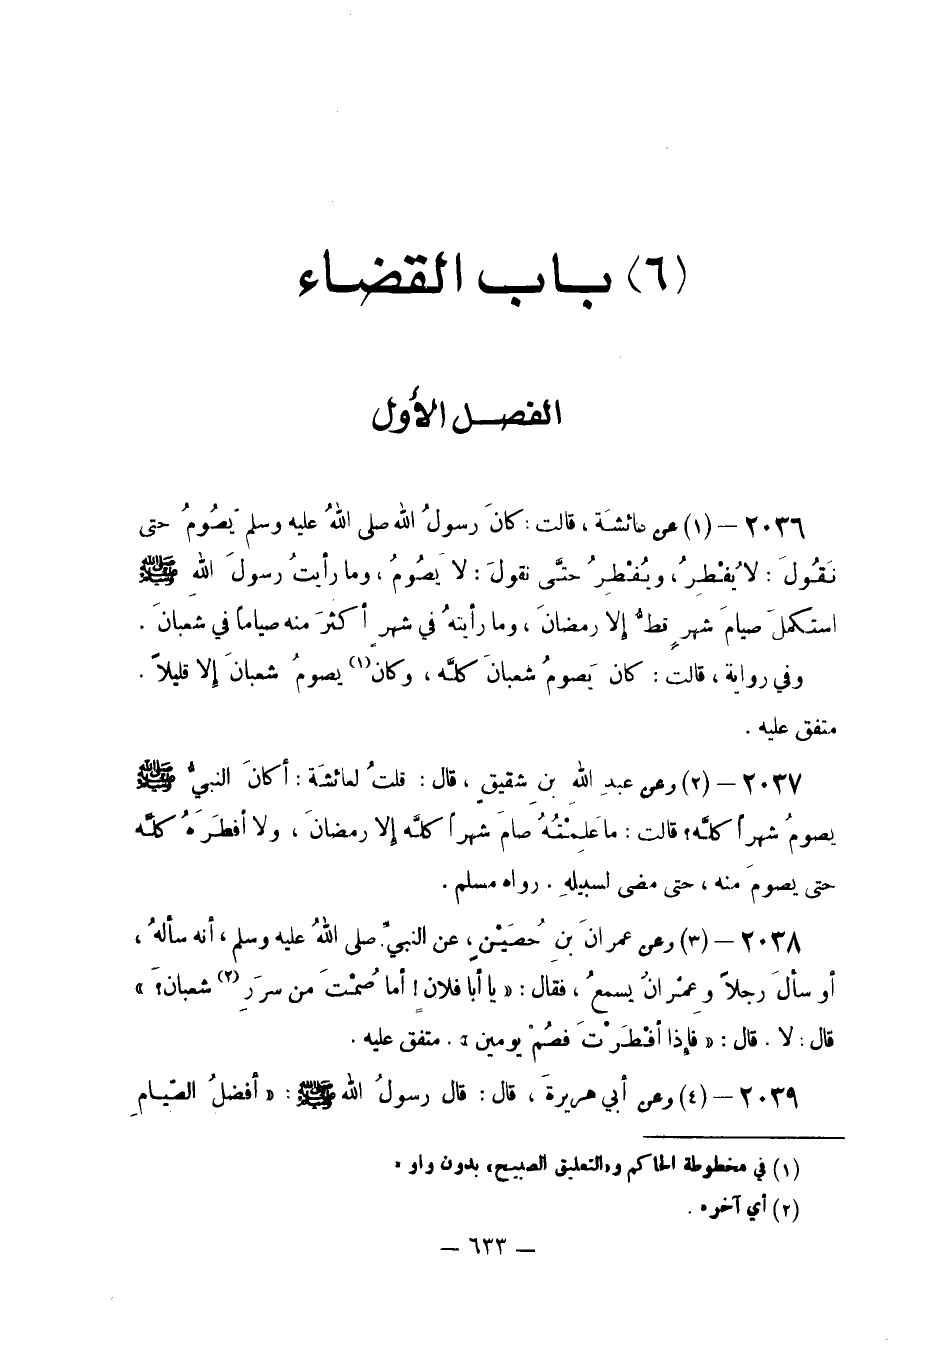 (٦) باب القضاء
الفصل الأول
٢٠٣٦ – (١) عن عائشة ، قالت : كانَ رسولُ الله صلى اللهُ عليه وسلم يَصُومُ حتى
نَقُولَ : لا يُفْطِرُ ، ويُفْطِرُ حتَّى نقولَ : لا يَصُومُ ، وما رأيتُ رسولَ اللهِ ﷺ
استكملَ صيامَ شهرٍ قطُّ إلا رمضانَ ، وما رأيتهُ في شهرٍ أكثرَ منه صياماً في شعبانَ .
وفي رواية ، قالت : كان يَصومُ شعبانَ كلَّه ، وكان(١) يصومُ شعبانَ إلا قليلاً .
متفق عليه .
٢٠٣٧ – (٢) وعن عبدِ اللهِ بنِ شقيقٍ ، قال : قلتُ لعائشة : أكانَ النبيُّ ﷺ
يصومُ شهراً كلَّه؟ قالت : ما عَلِمْتُهُ صامَ شهراً كلَّه إلا رمضانَ ، ولا أفطَرَهُ كلَّه
حتى يصومَ منه ، حتى مضى لسبيلهِ . رواه مسلم .
٢٠٣٨ – (٣) وعن عمرانَ بنِ حُصَيْنٍ ، عن النبيِّ صلى اللهُ عليه وسلم ، أنه سألهُ ،
أو سألَ رجلاً وعِمْرانُ يسمعُ ، فقال : « يا أبا فلانٍ ! أما صُمْتَ من سرَرِ(٢) شعبان؟ »
قال : لا . قال : « فإذا أفْطَرْتَ فصُمْ يومين » . متفق عليه .
٢٠٣٩ – (٤) وعن أبي هريرةَ ، قال : قال رسولُ الله ﷺ : « أفضلُ الصِّيامِ
(١) في مخطوطة الحاكم و«التعليق الصبيح» بدون واو .
(٢) أي آخره .
– ٦٣٣ –